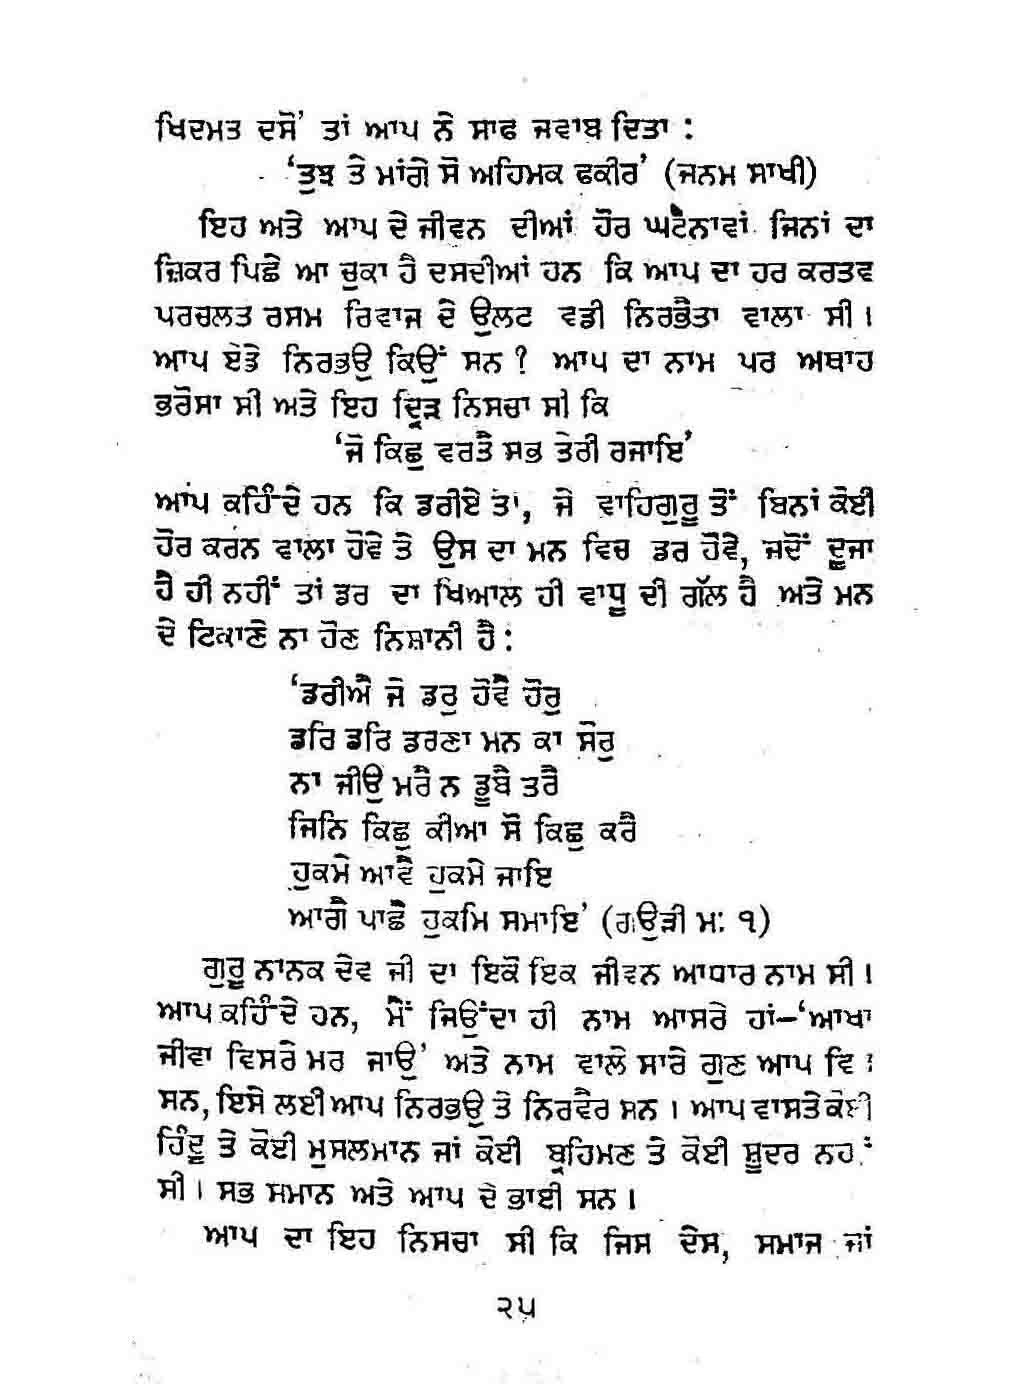 ਖਿਦਮਤ ਦਸੋ' ਤਾਂ ਆਪ ਨੇ ਸਾਫ ਜਵਾਬ ਦਿਤਾ :
'ਤੁਝ ਤੇ ਮਾਂਗੇ ਸੋ ਅਹਿਮਕ ਫਕੀਰ' (ਜਨਮ ਸਾਖੀ)
ਇਹ ਅਤੇ ਆਪ ਦੇ ਜੀਵਨ ਦੀਆਂ ਹੋਰ ਘਟੈਨਾਵਾਂ ਜਿਨਾਂ ਦਾ
ਜ਼ਿਕਰ ਪਿਛੇ ਆ ਚੁਕਾ ਹੈ ਦਸਦੀਆਂ ਹਨ ਕਿ ਆਪ ਦਾ ਹਰ ਕਰਤਵ
ਪਰਚਲਤ ਰਸਮ ਰਿਵਾਜ ਦੇ ਉਲਟ ਵਡੀ ਨਿਰਭੈਤਾ ਵਾਲਾ ਸੀ ।
ਆਪ ਏਤੇ ਨਿਰਭਉ ਕਿਉਂ ਸਨ ? ਆਪ ਦਾ ਨਾਮ ਪਰ ਅਥਾਹ
ਭਰੋਸਾ ਸੀ ਅਤੇ ਇਹ ਦ੍ਰਿੜ ਨਿਸਚਾ ਸੀ ਕਿ
'ਜੋ ਕਿਛੁ ਵਰਤੈ ਸਭ ਤੇਰੀ ਰਜਾਇ'
ਆਪ ਕਹਿੰਦੇ ਹਨ ਕਿ ਡਰੀਏ ਤਾਂ, ਜੇ ਵਾਹਿਗੁਰੂ ਤੋਂ ਬਿਨਾਂ ਕੋਈ
ਹੋਰ ਕਰਨ ਵਾਲਾ ਹੋਵੇ ਤੇ ਉਸ ਦਾ ਮਨ ਵਿਚ ਡਰ ਹੋਵੇ, ਜਦੋਂ ਦੂਜਾ
ਹੈ ਹੀ ਨਹੀਂ ਤਾਂ ਡਰ ਦਾ ਖਿਆਲ ਹੀ ਵਾਧੂ ਦੀ ਗੱਲ ਹੈ ਅਤੇ ਮਨ
ਦੇ ਟਿਕਾਣੇ ਨਾ ਹੋਣ ਨਿਸ਼ਾਨੀ ਹੈ :
'ਡਰੀਐ ਜੇ ਡਰੁ ਹੋਵੈ ਹੋਰੁ
ਡਰਿ ਡਰਿ ਡਰਣਾ ਮਨ ਕਾ ਸੋਰੁ
ਨਾ ਜੀਉ ਮਰੈ ਨ ਡੂਬੈ ਤਰੈ
ਜਿਨਿ ਕਿਛੁ ਕੀਆ ਸੋ ਕਿਛੁ ਕਰੈ
ਹੁਕਮੇ ਆਵੈ ਹੁਕਮੇ ਜਾਇ
ਆਗੈ ਪਾਛੈ ਹੁਕਮਿ ਸਮਾਇ' (ਗਉੜੀ ਮ: ੧)
ਗੁਰੂ ਨਾਨਕ ਦੇਵ ਜੀ ਦਾ ਇਕੋ ਇਕ ਜੀਵਨ ਆਧਾਰ ਨਾਮ ਸੀ ।
ਆਪ ਕਹਿੰਦੇ ਹਨ, ਮੈਂ ਜਿਉਂਦਾ ਹੀ ਨਾਮ ਆਸਰੇ ਹਾਂ–'ਆਖਾ
ਜੀਵਾ ਵਿਸਰੇ ਮਰ ਜਾਉ' ਅਤੇ ਨਾਮ ਵਾਲੇ ਸਾਰੇ ਗੁਣ ਆਪ ਵਿ
ਸਨ, ਇਸੇ ਲਈ ਆਪ ਨਿਰਭਉ ਤੇ ਨਿਰਵੈਰ ਸਨ । ਆਪ ਵਾਸਤੇ ਕੋਈ
ਹਿੰਦੂ ਤੇ ਕੋਈ ਮੁਸਲਮਾਨ ਜਾਂ ਕੋਈ ਬ੍ਰਹਿਮਣ ਤੇ ਕੋਈ ਸ਼ੂਦਰ ਨਹੀਂ
ਸੀ । ਸਭ ਸਮਾਨ ਅਤੇ ਆਪ ਦੇ ਭਾਈ ਸਨ ।
ਆਪ ਦਾ ਇਹ ਨਿਸਚਾ ਸੀ ਕਿ ਜਿਸ ਦੇਸ, ਸਮਾਜ ਜਾਂ
੨੫